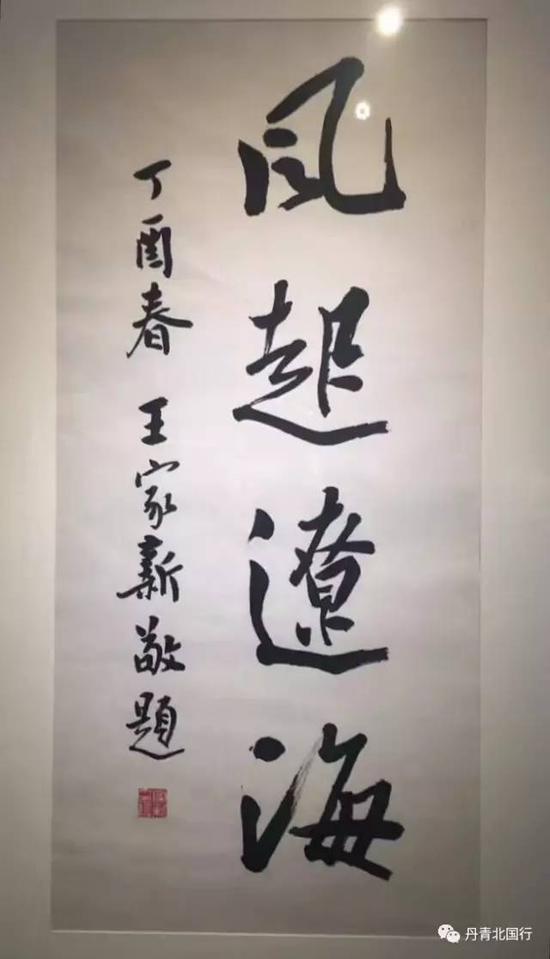 风起遼海
丁酉春 王家新敬題
丹青北国行